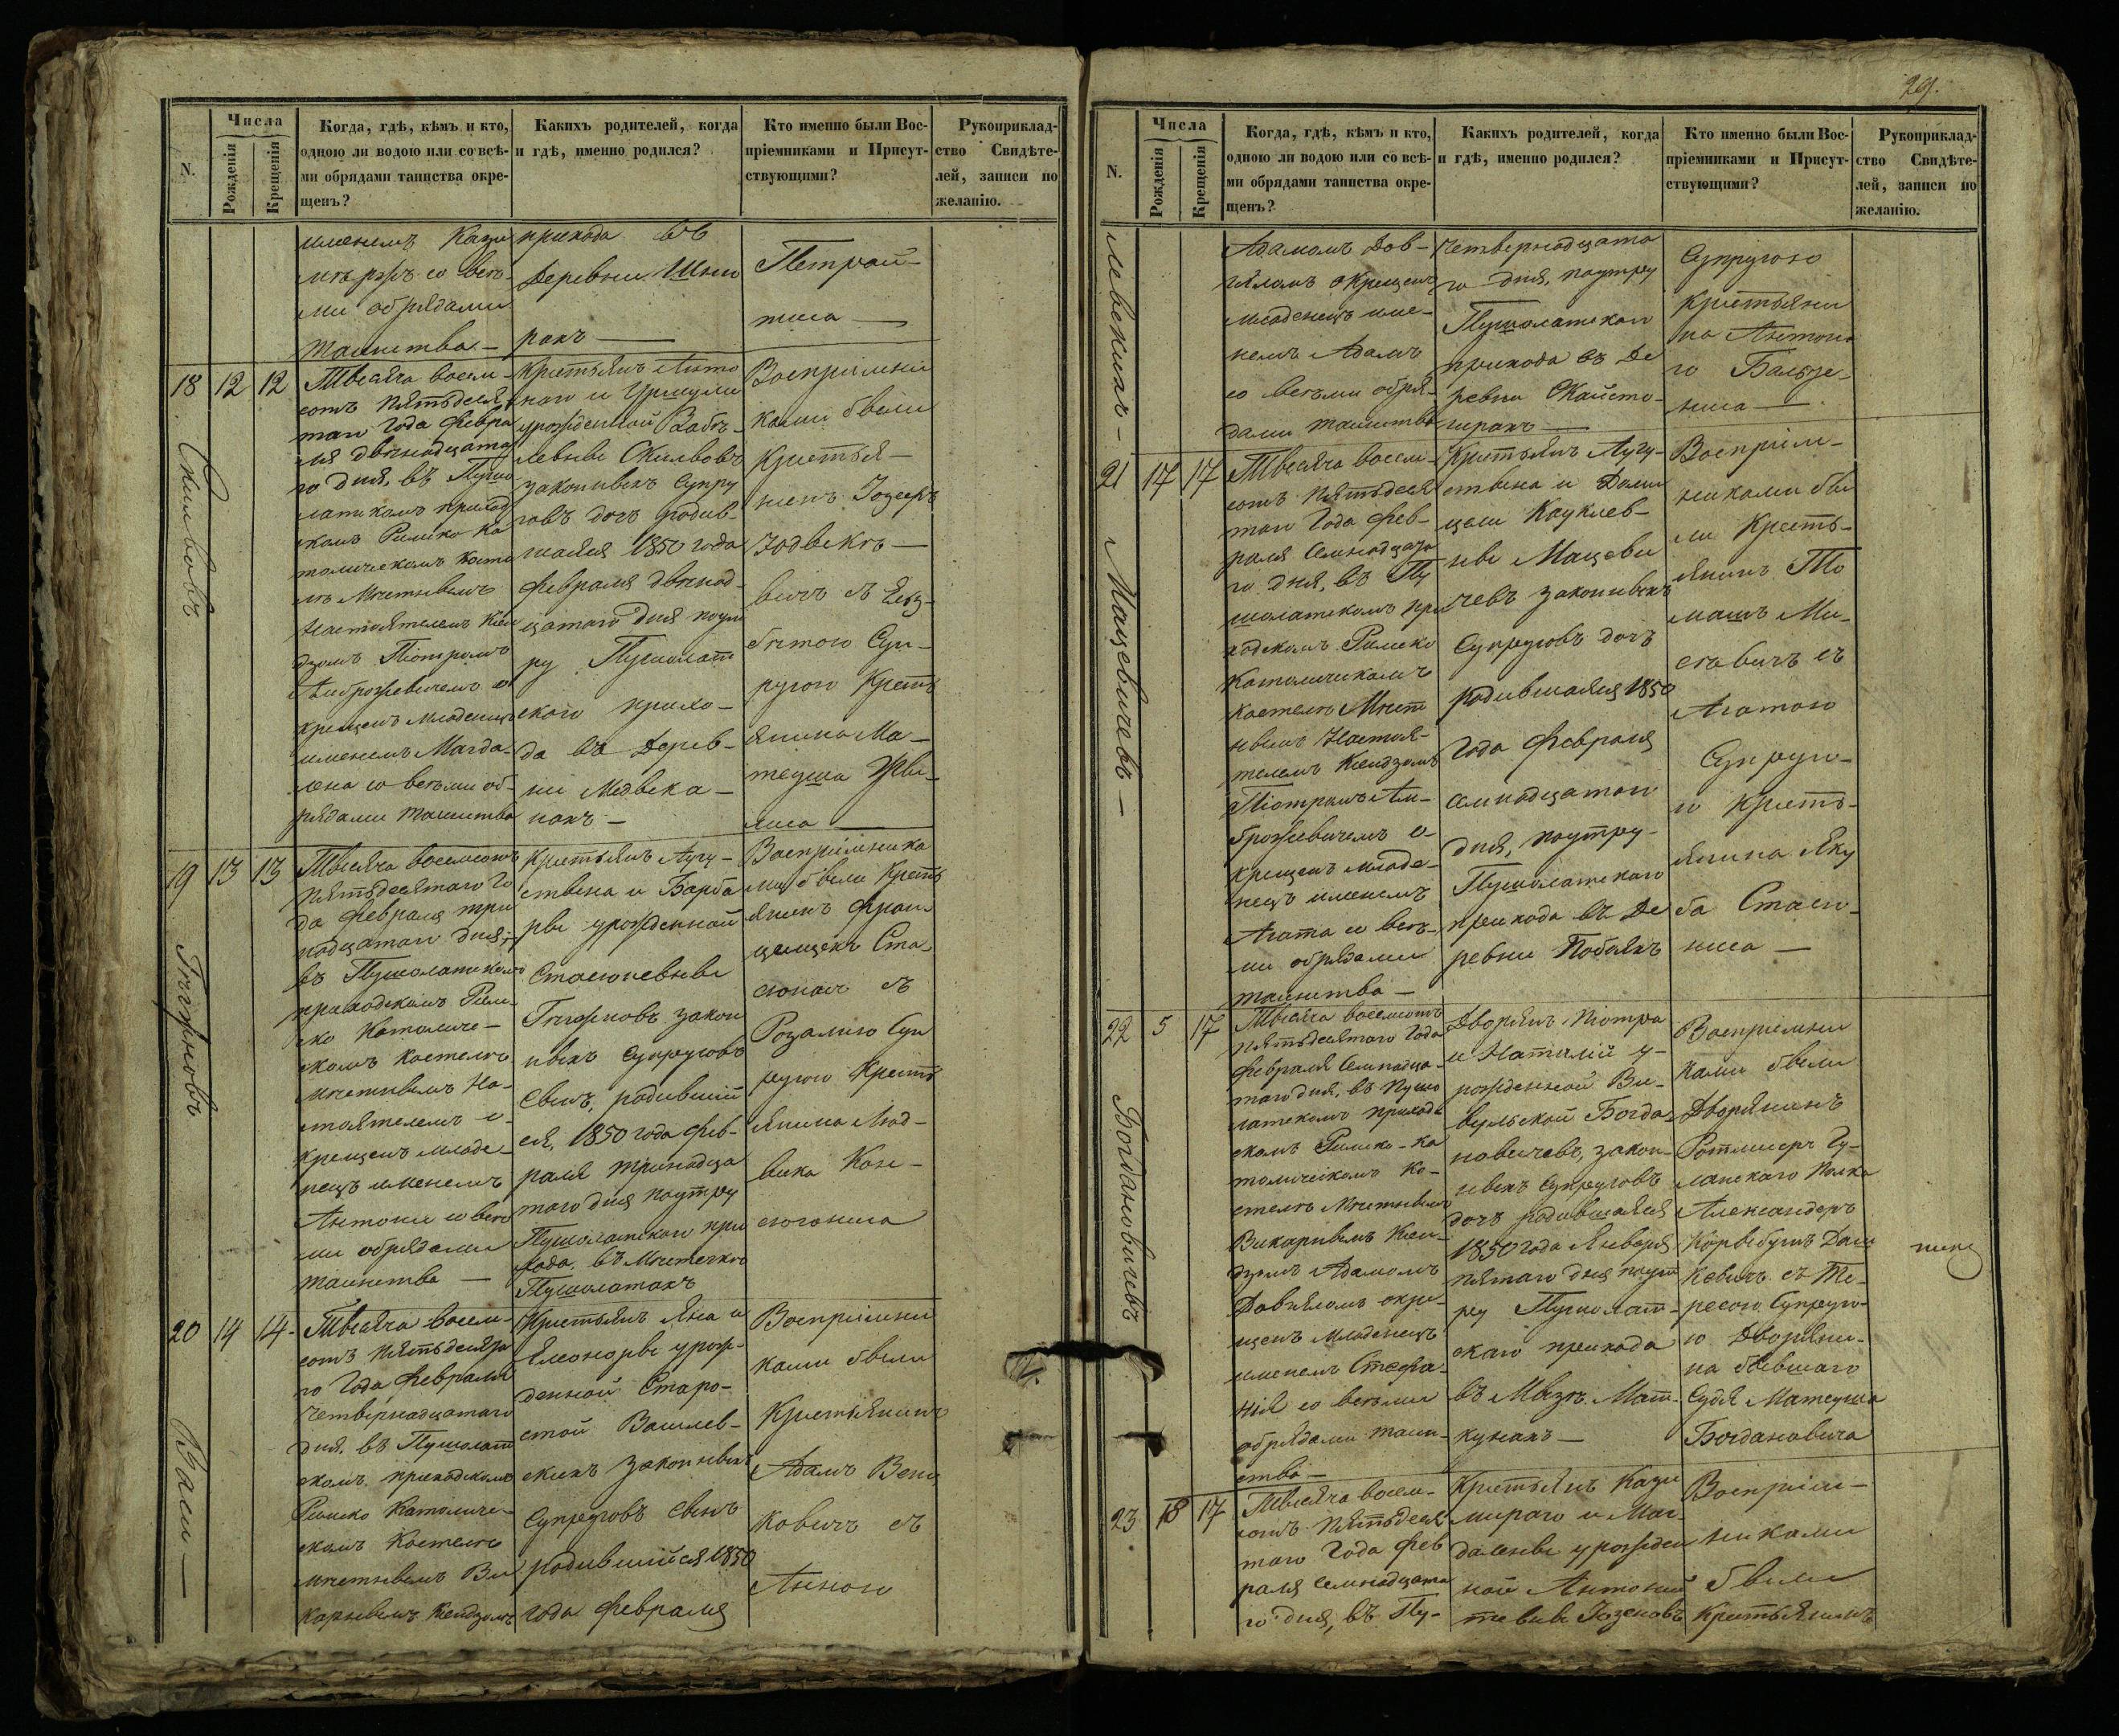 29.
N.
Числа
Рожденія
Крещенія
Когда, гдѣ, кѣмъ и кто,
одною ли водою или со всѣ-
ми обрядами таинства окре-
щенъ?
Какихъ родителей, когда
и гдѣ, именно родился?
Кто именно были Вос-
пріемниками и Присут-
ствующими?
Рукоприклад-
ство Свидѣте-
лей, записи по
желанію.
именемъ Кази
мѣръ со всѣ-
ми обрядами
таинства —
прихода въ
деревни
ранъ —
Петрой-
тиса —
18
12
12
Скильвовъ
Тысяча восем-
сотъ пятьдеся
таго года Февра
ля двѣнадцата
го дня, въ Пушо
латскомъ приход
скомъ Римско Ка
толическомъ Косте
лѣ мѣстнымъ
Настоятелемъ Ксен
дзомъ Піотромъ
Амброжевичемъ о
крещенъ младенецъ
именемъ Магда-
лена со всѣми об-
рядами таинства
Крестьянъ Анто
наго и Уршули
урожденной
Скильвовъ
законныхъ Супру
говъ дочь родив-
шаяся 1850 года
Февраля двѣнад-
цатаго дня поут
ру Пушолат
скаго прихо-
да въ Дерев-
ни Медвека-
ляхъ —
Воспріемни
ками были
Крестья-
нинъ Іозефъ
Юдвекъ —
вичъ съ Елз-
бѣтою Суп-
ругою Кресть
янина Ма-
теуша
лиса —
19
13
13
Тысяча восемсотъ
пятьдесятаго Го
да Февраля три
надцатаго дня,
въ Пушолатскомъ
приходскомъ Рим-
ско Католиче-
скомъ Костелѣ
мѣстнымъ На-
стоятелемъ о-
крещенъ младе-
нецъ именемъ
Антони со всѣ
ми обрядами
таинства —
Крестьянъ Авгу-
стына и Барба
ры урожденной
Стасюневны
законныхъ Супруговъ
Сынъ, родившій
ся, 1850 года Фев-
раля тринадца
таго дня поутру
Пушолатскаго при
хода, въ мѣстечкѣ
Пушолатахъ
Воспріемника
ми были Кресть
янинъ Фран
цишекъ Ста
сюнасъ съ
Розалію Суп
ругою Кресть
янина Люд-
вика
20
14
14
Ваш —
Тысяча восем-
сотъ пятьдесята
го Года Февраля
четвернадцатаго
дня въ Пушолат
скомъ приходскомъ
Римско Католиче-
скомъ Костелѣ
мѣстнымъ Ви
карнымъ Ксендзомъ
Крестьянъ Яна и
Элеоноры урож-
денной Старо-
стой Вашлев-
скихъ законныхъ
Супруговъ Сынъ
родившійся 1850
года Февраля
Воспріемни
ками были
Крестьянинъ
Адамъ
ковичъ съ
Анною
N.
Числа
Рожденія
Крещенія
Когда, гдѣ, кѣмъ и кто,
одною ли водою или со всѣ-
ми обрядами таинства окре-
щенъ?
Какихъ родителей, когда
и гдѣ, именно родился?
Кто именно были Вос-
пріемниками и Присут-
ствующими?
Рукоприклад-
ство Свидѣте-
лей, записи по
желанію.
левскихъ —
Адамомъ Дов-
гялломъ окрещенъ
младенецъ име-
немъ Адамъ
со всѣми обря-
дами таинства
четвернадцата
го дня, поутру
Пушолатскаго
прихода въ Де
ревни Скайсто-
гирахъ —
Супругою
Крестьяни
на Антона
го
ниса —
21
17
17
Мацевичевъ —
Тысяча восем-
сотъ пятьдеся
таго Года Фев-
раля семнадцата
го дня, въ Пу
шолатскомъ при
ходскомъ Римско
Католическомъ
Костелѣ мѣст
нымъ Настоя-
телемъ Ксендзомъ
Піотромъ Ам-
брожевичемъ о-
крещенъ младе-
нецъ именемъ
Агата со всѣ-
ми обрядами
таинства —
Крестьянъ Авгу-
стына и Доми
цели
Мацеви
чевъ законныхъ
Супруговъ дочь
родившаяся 1850
Года Февраля
семнадцатаго
дня, поутру
Пушолатскаго
прихода въ Де
ревни
Воспріем-
никами бы
ли Кресть-
янинъ То
машъ Ми-
съ
Агатою
Супруго-
ю Кресть-
янина Яку
ба Стасю-
ниса —
22
5
17
Богдановичевъ
Тысяча восемсотъ
пятьдесятаго Года
Февраля семнадца-
таго дня, въ Пушо
латскомъ приход
скомъ Римско-Ка
толическомъ Ко-
стелѣ мѣстнымъ
Викарнымъ Ксен-
дзомъ Адамомъ
Довгялломъ окре-
щенъ младенецъ
именемъ Стефа-
нія со всѣми
обрядами таин-
ства —
Дворянъ Піотра
и Наталій у-
рожденной
Богда-
новичевъ, закон-
ныхъ Супруговъ
дочь родившаяся
1850 года Января
пятаго дня поут
ру Пушолат-
скаго прихода
въ Мызѣ Мат-
кунахъ —
Воспріемни
ками были
Дворянинъ
Ротмистръ Гу-
ланскаго Полка
Александеръ
Корвебутъ Даш
кевичъ съ Те-
ресою Супруго-
ю Дворяни-
на бывшаго
Судя Матеуша
Богдановича
23
18
17
Тысяча восем-
сотъ пятьдеся
таго Года Фев
раля семнадцата
го дня, въ Пу-
Крестьянъ Кази
мираго и Маг-
далены урожден
ной
Воспріем-
никами
были
Крестьянинъ